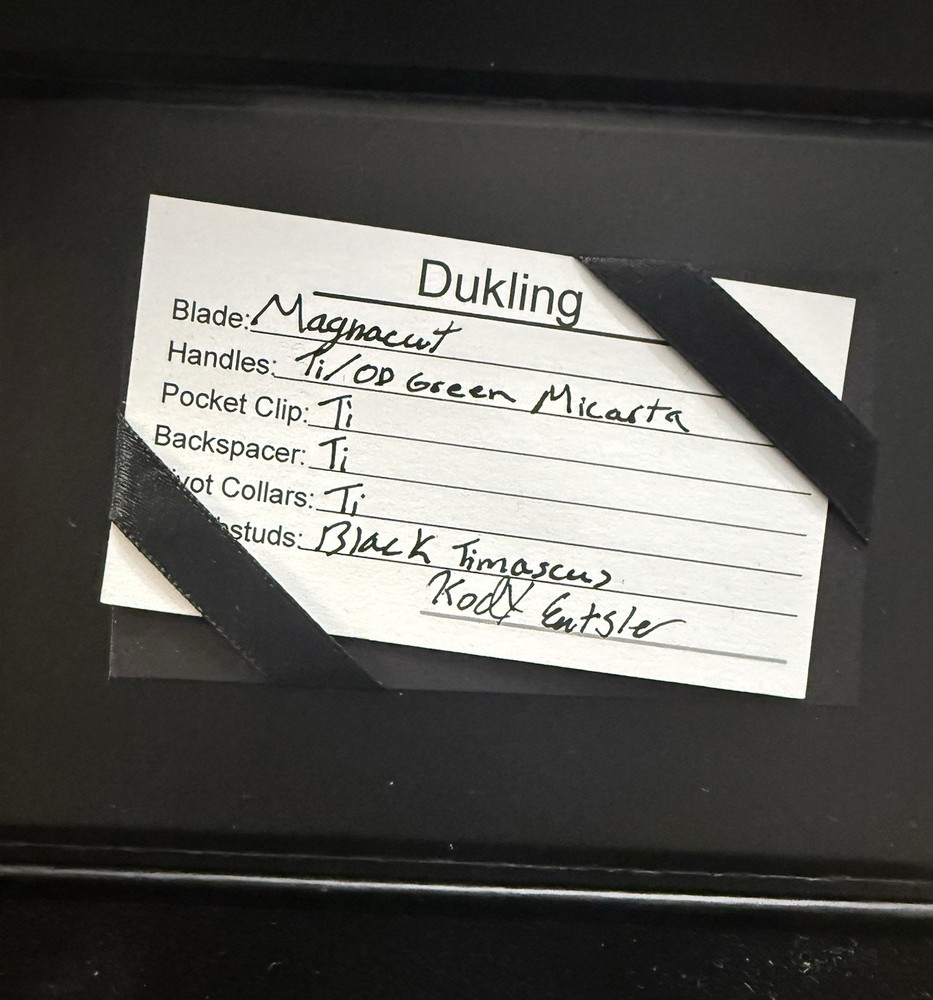 Dukling
Blade: Magnacut
Handles: Ti/OD Green Micarta
Pocket Clip: Ti
Backspacer: Ti
vot Collars: Ti
bstuds: Black Timascus
Kody Entsler